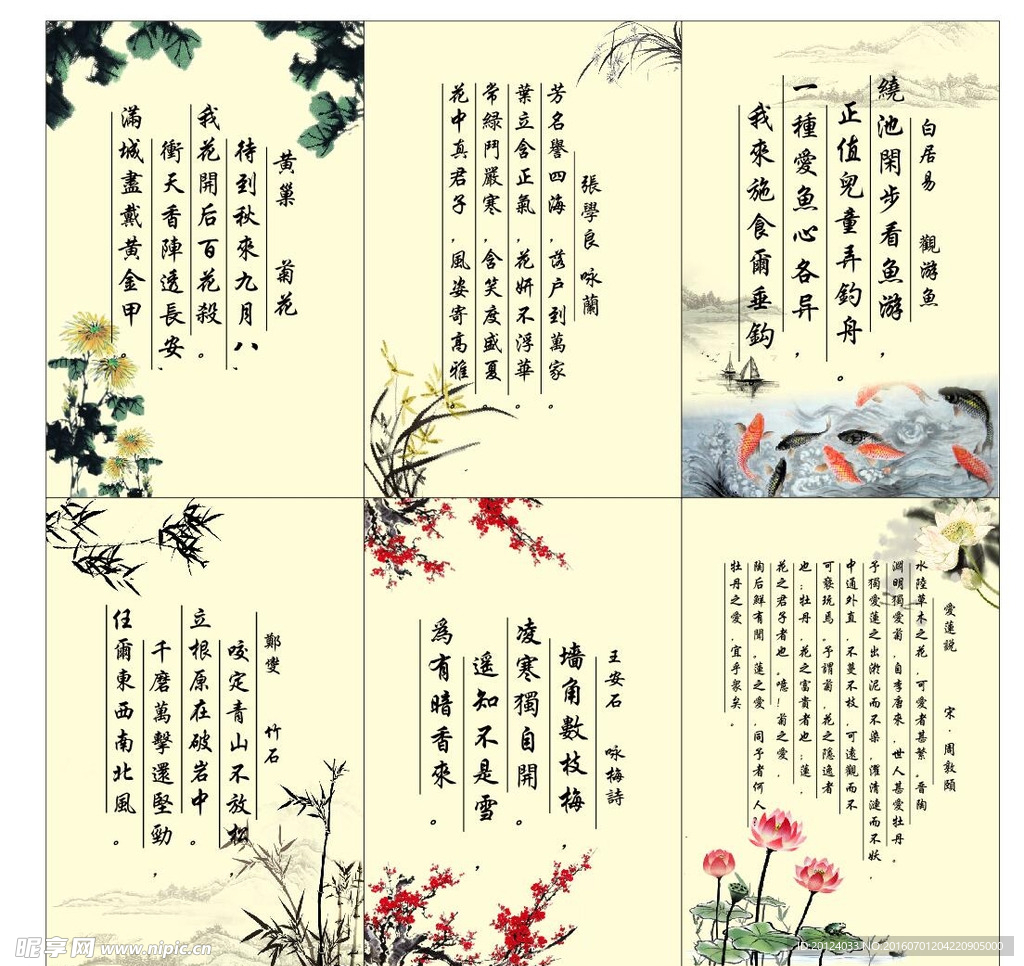 黄巢　菊花
待到秋來九月八，
我花開后百花殺。
衝天香陣透長安，
滿城盡戴黄金甲。
張學良 咏蘭
芳名譽四海，落户到萬家。
葉立含正氣，花妍不浮華。
常緑鬥嚴寒，含笑度盛夏。
花中真君子，風姿寄高雅。
白居易　觀游魚
繞池閑步看魚游，
正值兒童弄釣舟。
一種愛魚心各异，
我來施食爾垂鈎。
鄭燮　竹石
咬定青山不放松，
立根原在破岩中。
千磨萬擊還堅勁，
任爾東西南北風。
王安石　咏梅詩
墙角數枝梅，
凌寒獨自開。
遥知不是雪，
爲有暗香來。
愛蓮説　宋·周敦頤
水陸草木之花，可愛者甚繁。晋陶
淵明獨愛菊，自李唐來，世人甚愛牡丹。
予獨愛蓮之出淤泥而不染，濯清漣而不妖，
中通外直，不蔓不枝，可遠觀而不
可褻玩焉。予謂菊，花之隱逸者
也；牡丹，花之富貴者也；蓮，
花之君子者也。噫！菊之愛，
陶后鮮有聞。蓮之愛，同予者何人？
牡丹之愛，宜乎衆矣。
昵享网 www.nipic.cn
ID:20124033 NO:20160701204220905000